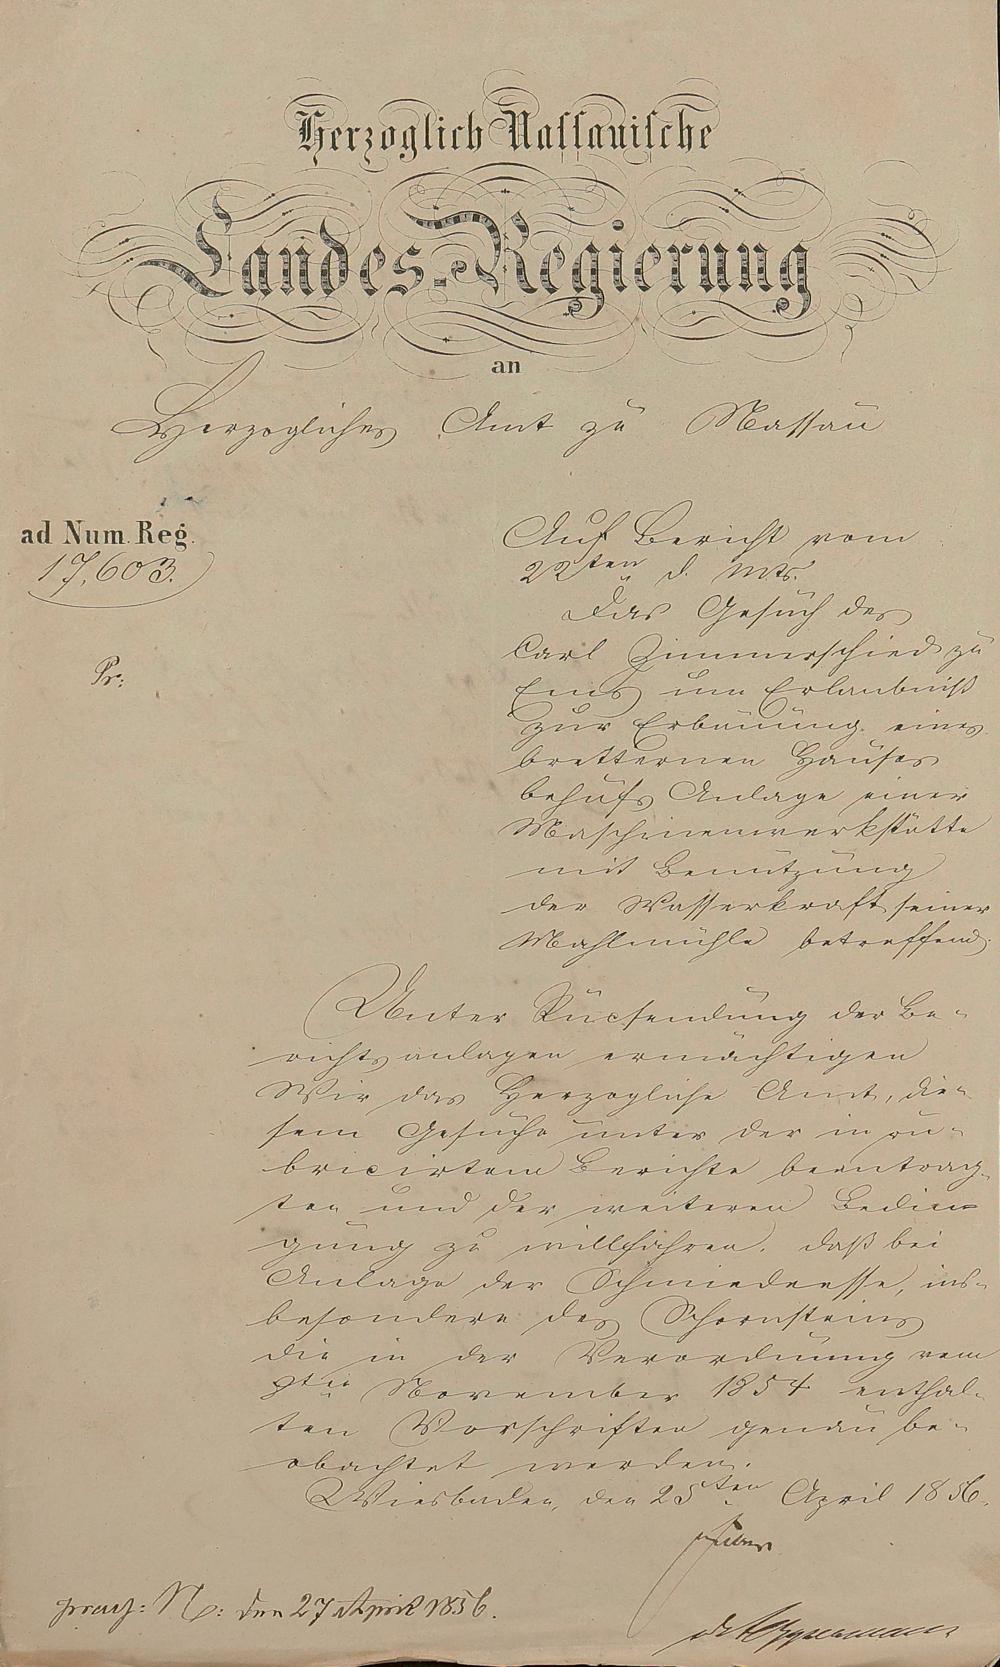 Herzoglich Nassauische
Landes-Regierung
an
Herzogliches Amt zu Nassau
ad Num. Reg.
17,603.
Pr:
Auf Bericht vom
22ten d. Mts.
Das Gesuch des
Carl Zimmerschied zu
Ems um Erlaubniß
zur Erbauung eines
bretternen Hauses
behufs Anlage einer
Maschinenwerkstätte
mit Benutzung
der Wasserkraft seiner
Mahlmühle betreffend.
Unter Rücksendung der Be-
richtsanlagen ermächtigen
Wir das Herzogliche Amt, die-
sem Gesuche unter der in ru-
bricirtem Berichte beantrag-
ten und der weiteren Bedin-
gung zu willfahren, daß bei
Anlage der Schmiedeesse, ins-
besondere des Schornsteins
die in der Verordnung vom
November 1854 enthal-
tenen Vorschriften genau be-
obachtet werden.
Wiesbaden, den 25ten April 1856.
praes: N: den 27 April 1856.